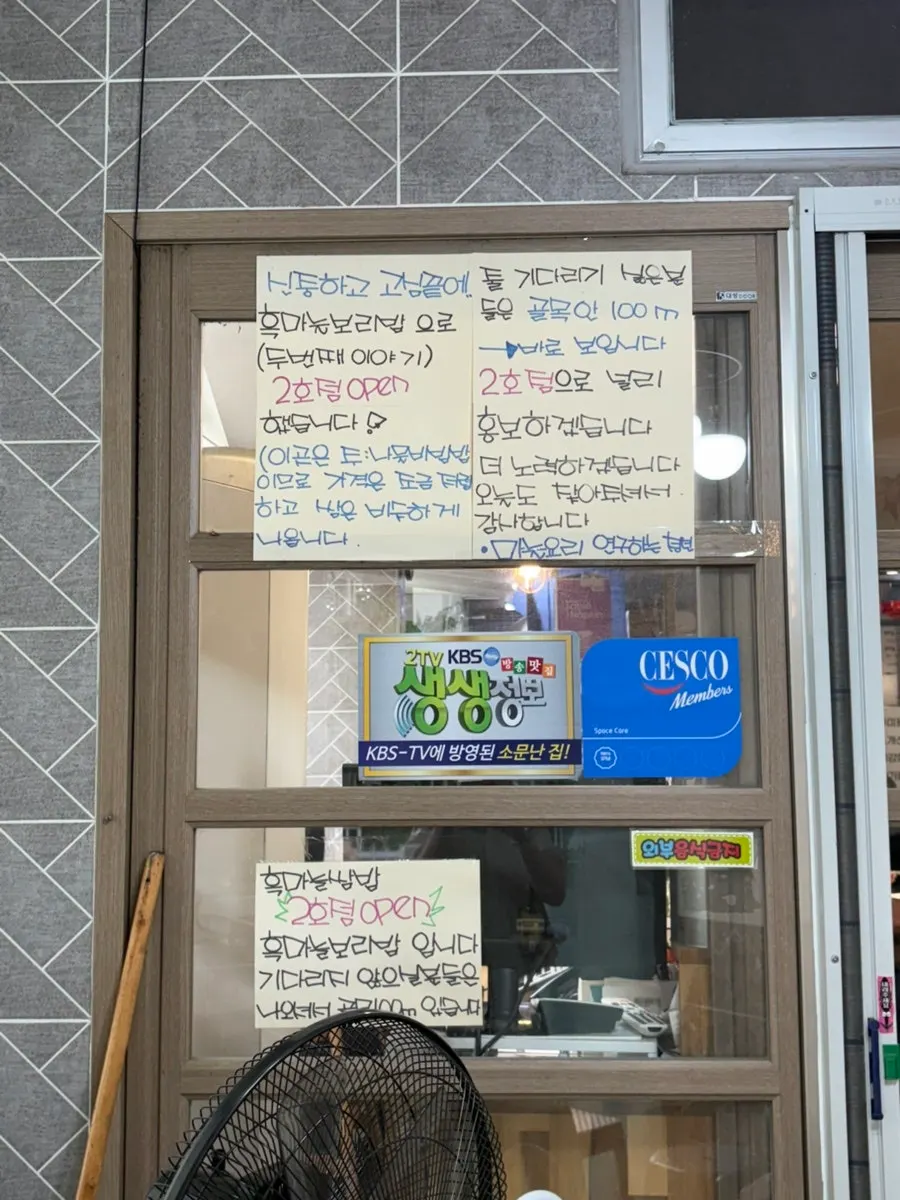 신중하고 고심끝에
흑마늘보리밥 으로
(두번째 이야기)
2호점 open
했습니다
(이곳은 투:나물비빔밥
이므로 가격은 조금 저렴
하고 쌈은 비슷하게
나옵니다.
들 기다리기 싫은분
들은 골목안 100m
→바로 보입니다
2호점으로 널리
홍보하겠습니다
더 노력하겠습니다
오늘도 찾아줘서
감사합니다
•마늘요리 연구하는
대방DOOR
2TV KBS 방송맛집
생생정보
KBS-TV에 방영된 소문난 집!
CESCO
Members
Space Care
외부음식금지
흑마늘쌈밥
2호점 open
흑마늘보리밥 입니다
기다리지 않으실분들은
나오셔서 100m 있습니다